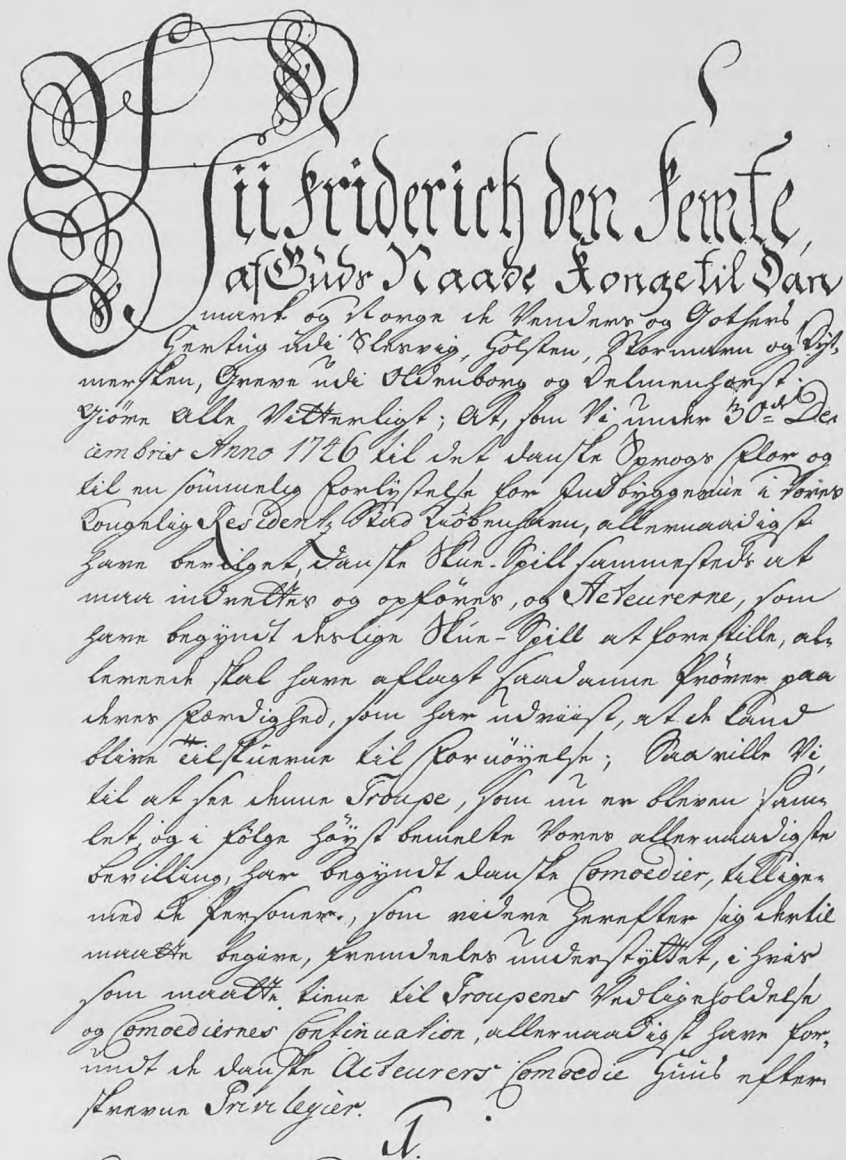 Vii Friderich den Femte,
af Guds Naade Konge til Dan
mark og Norge de Venders og Gothers
Hertug udi Slesvig, Holsten, Stormarn og Dyt,
mersken, Greve udi Oldenborg og Delmenhorst.
Giøre Alle Vitterligt; At, som Vi, under 30de De=
cembris Anno 1746 til det danske Sprogs Flor og
til en sømmelig Forlystelse for Indbyggerne i Vores
Kongelig Residentz Stad Kiøbenhavn, allernaadigst
have bevilget, danske Skue-Spill sammesteds at
maa indrettes og opføres, og Acteurerne, som
have begyndt deslige Skue-Spill at forestille, al=
lereede skal have aflagt saadanne Prøver paa
deres Færdighed, som har udviist, at de kand
blive Tilskuerne til Fornøyelse; Saa ville Vi,
til at see denne Troupe, som nu er bleven sam=
let, og i følge høyst bemelte Vores allernaadigste
bevilling, har begyndt danske Comoedier, tillige=
med de Personer, som videre herefter sig dertil
maatte begive, fremdeeles understyttet, i hvis
som maatte tiene til Troupens Vedligeholdelse
og Comoediernes Continuation, allernaadigst have for,
undt de danske Acteurers Comoedie Huus efter=
skrevne Privilegier.
1.